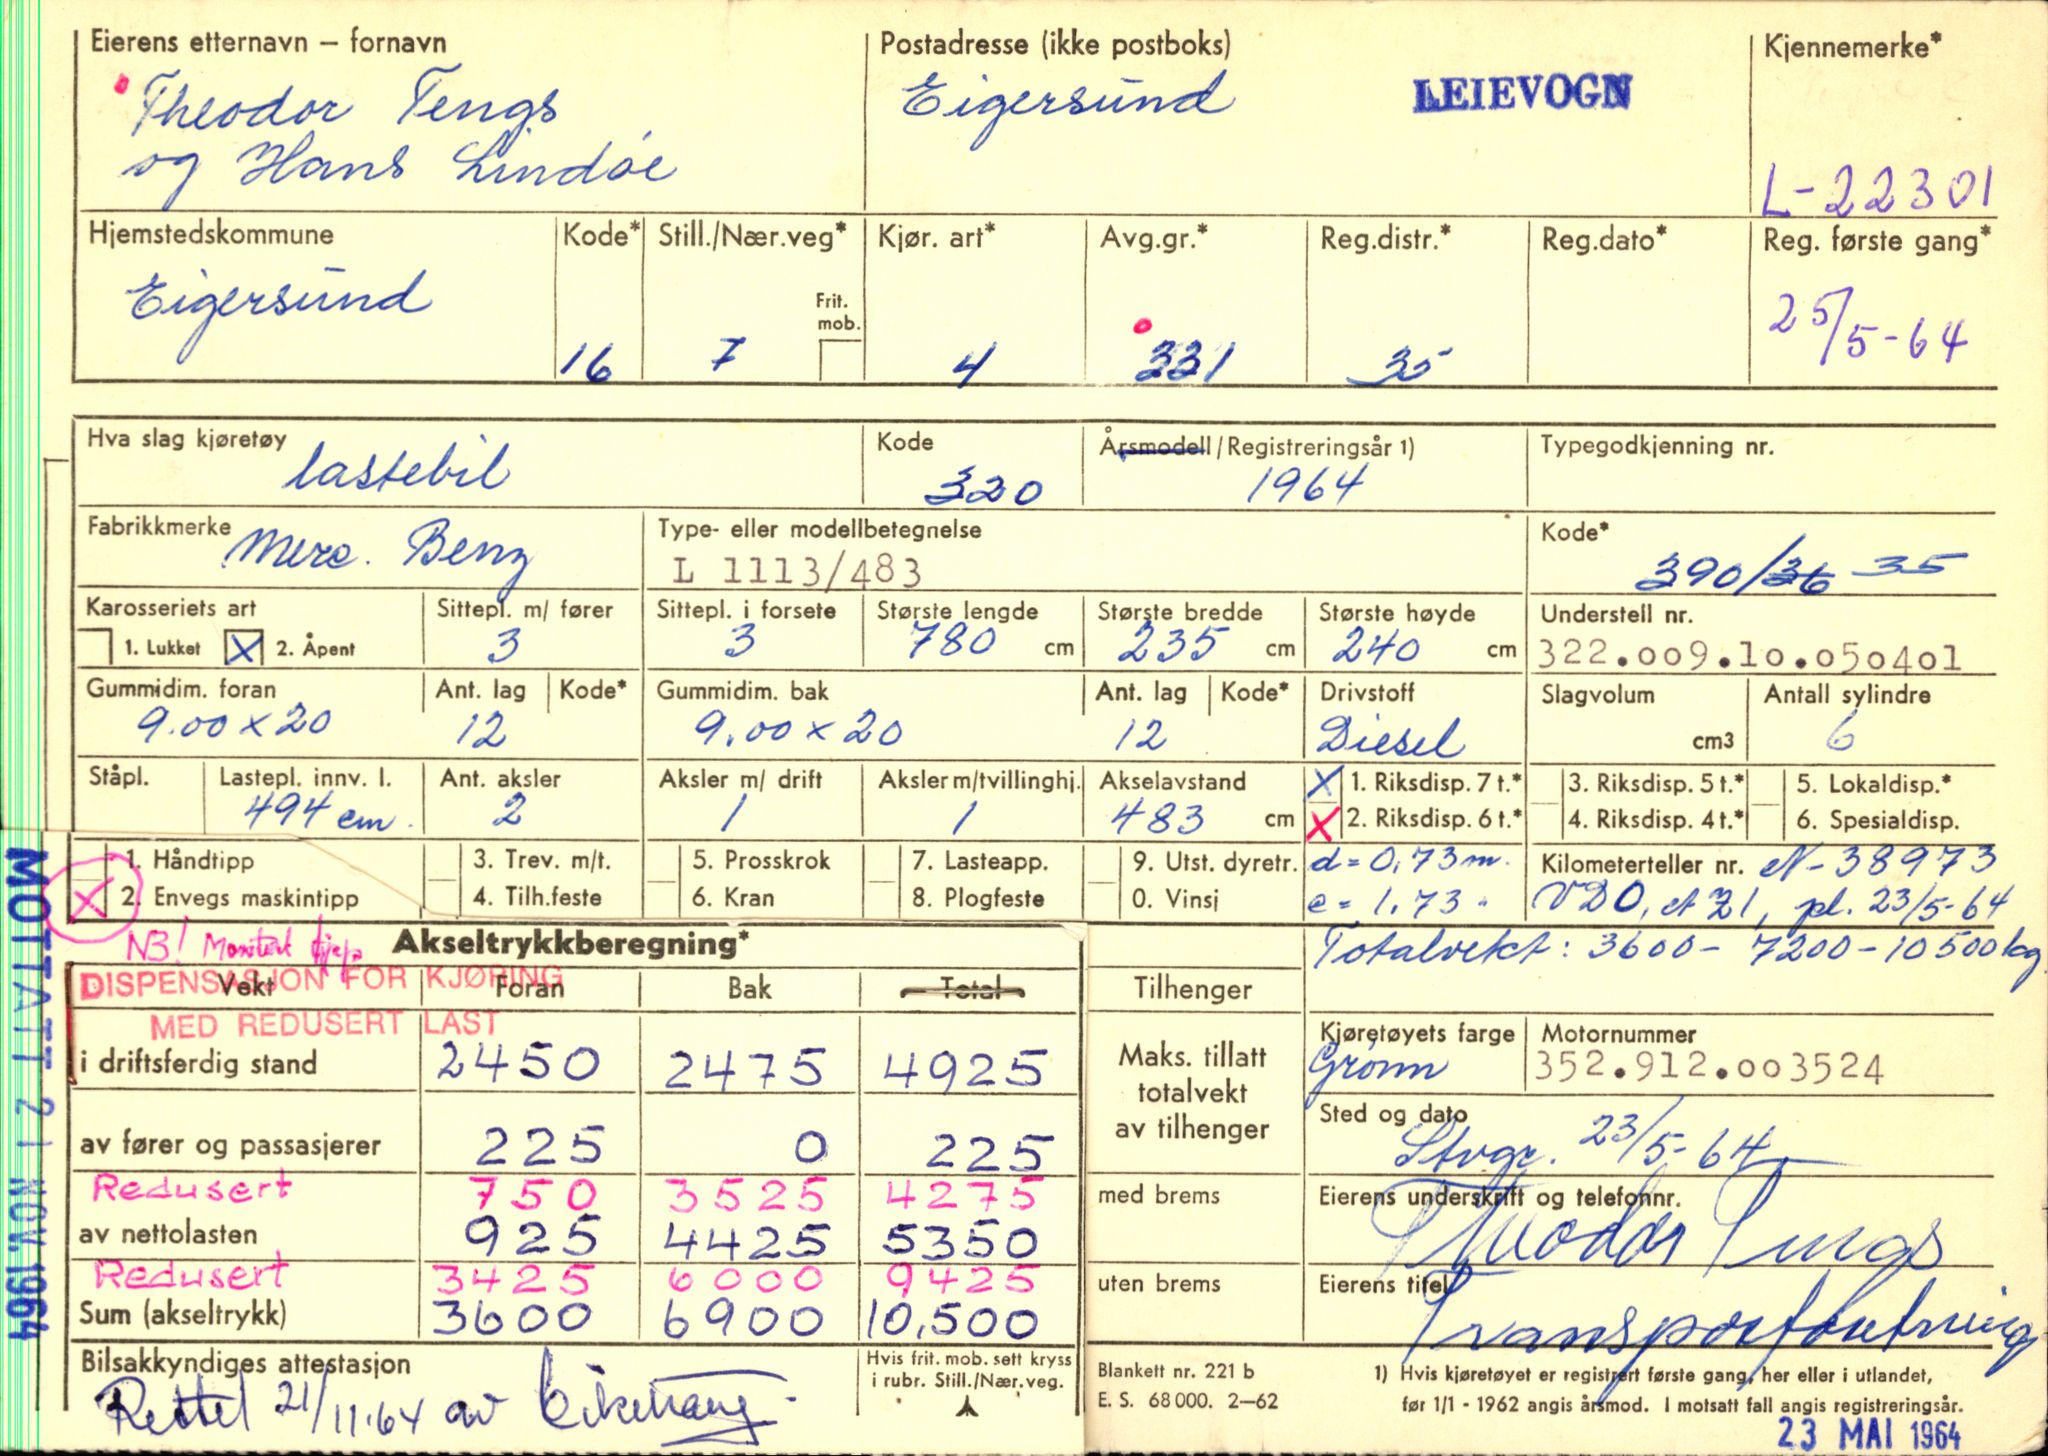 Eierens etternavn – fornavn
Theodor Tengs
og Hans Lindøe
Postadresse (ikke postboks)
Eigersund
LEIEVOGN
Kjennemerke*
L-22301
Hjemstedskommune
Eigersund
Kode*
16
Still./Nær.veg*
7
Frit. mob.
Kjør. art*
4
Avg.gr.*
331
Reg.distr.*
35
Reg.dato*
Reg. første gang*
25/5-64
Hva slag kjøretøy
lastebil
Kode
320
Årsmodell/Registreringsår 1)
1964
Typegodkjenning nr.
Fabrikkmerke
Merc. Benz
Type- eller modellbetegnelse
L 1113/483
Kode*
390/36 35
Karosseriets art
1. Lukket X 2. Åpent
Sittepl. m/ fører
3
Sittepl. i forsete
3
Største lengde
780 cm
Største bredde
235 cm
Største høyde
240 cm
Understell nr.
322.009.10.050401
Gummidim. foran
9.00 x 20
Ant. lag
12
Kode*
Gummidim. bak
9.00 x 20
Ant. lag
12
Kode*
Drivstoff
Diesel
Slagvolum
cm3
Antall sylindre
6
Ståpl.
Lastepl. innv. l.
494 cm.
Ant. aksler
2
Aksler m/ drift
1
Aksler m/tvillinghj.
1
Akselavstand
483 cm
X 1. Riksdisp. 7 t.*
X 2. Riksdisp. 6 t.*
3. Riksdisp. 5 t.*
4. Riksdisp. 4 t.*
5. Lokaldisp.*
6. Spesialdisp.
1. Håndtipp
X 2. Envegs maskintipp
3. Trev. m/t.
4. Tilh.feste
5. Prosskrok
6. Kran
7. Lasteapp.
8. Plogfeste
9. Utst. dyretr.
0. Vinsj
d = 0,73 m.
e = 1,73 "
Kilometerteller nr. N-38973
VDO, pl. 23/5-64
Totalvekt: 3600 - 7200 - 10500 kg
NB! Montert
Akseltrykkberegning*
DISPENSASJON FOR KJØRING
MED REDUSERT LAST
Vekt Foran Bak Total
i driftsferdig stand 2450 2475 4925
av fører og passasjerer 225 0 225
Redusert 750 3525 4275
av nettolasten 925 4425 5350
Redusert 3425 6000 9425
Sum (akseltrykk) 3600 6900 10,500
Tilhenger
Maks. tillatt
totalvekt
av tilhenger
med brems
uten brems
Kjøretøyets farge
Grønn
Motornummer
352.912.003524
Sted og dato
Stvgr. 23/5-64
Eierens underskrift og telefonnr.
Theodor Tengs
Eierens titel
Transportforretning
Bilsakkyndiges attestasjon
Rettet 21/11.64 av
Hvis frit. mob. sett kryss
i rubr. Still./Nær.veg.
Blankett nr. 221 b
E. S. 68 000. 2–62
1) Hvis kjøretøyet er registrert første gang, her eller i utlandet,
før 1/1 - 1962 angis årsmod. I motsatt fall angis registreringsår.
23 MAI 1964
MOTTATT 21 NOV. 1964